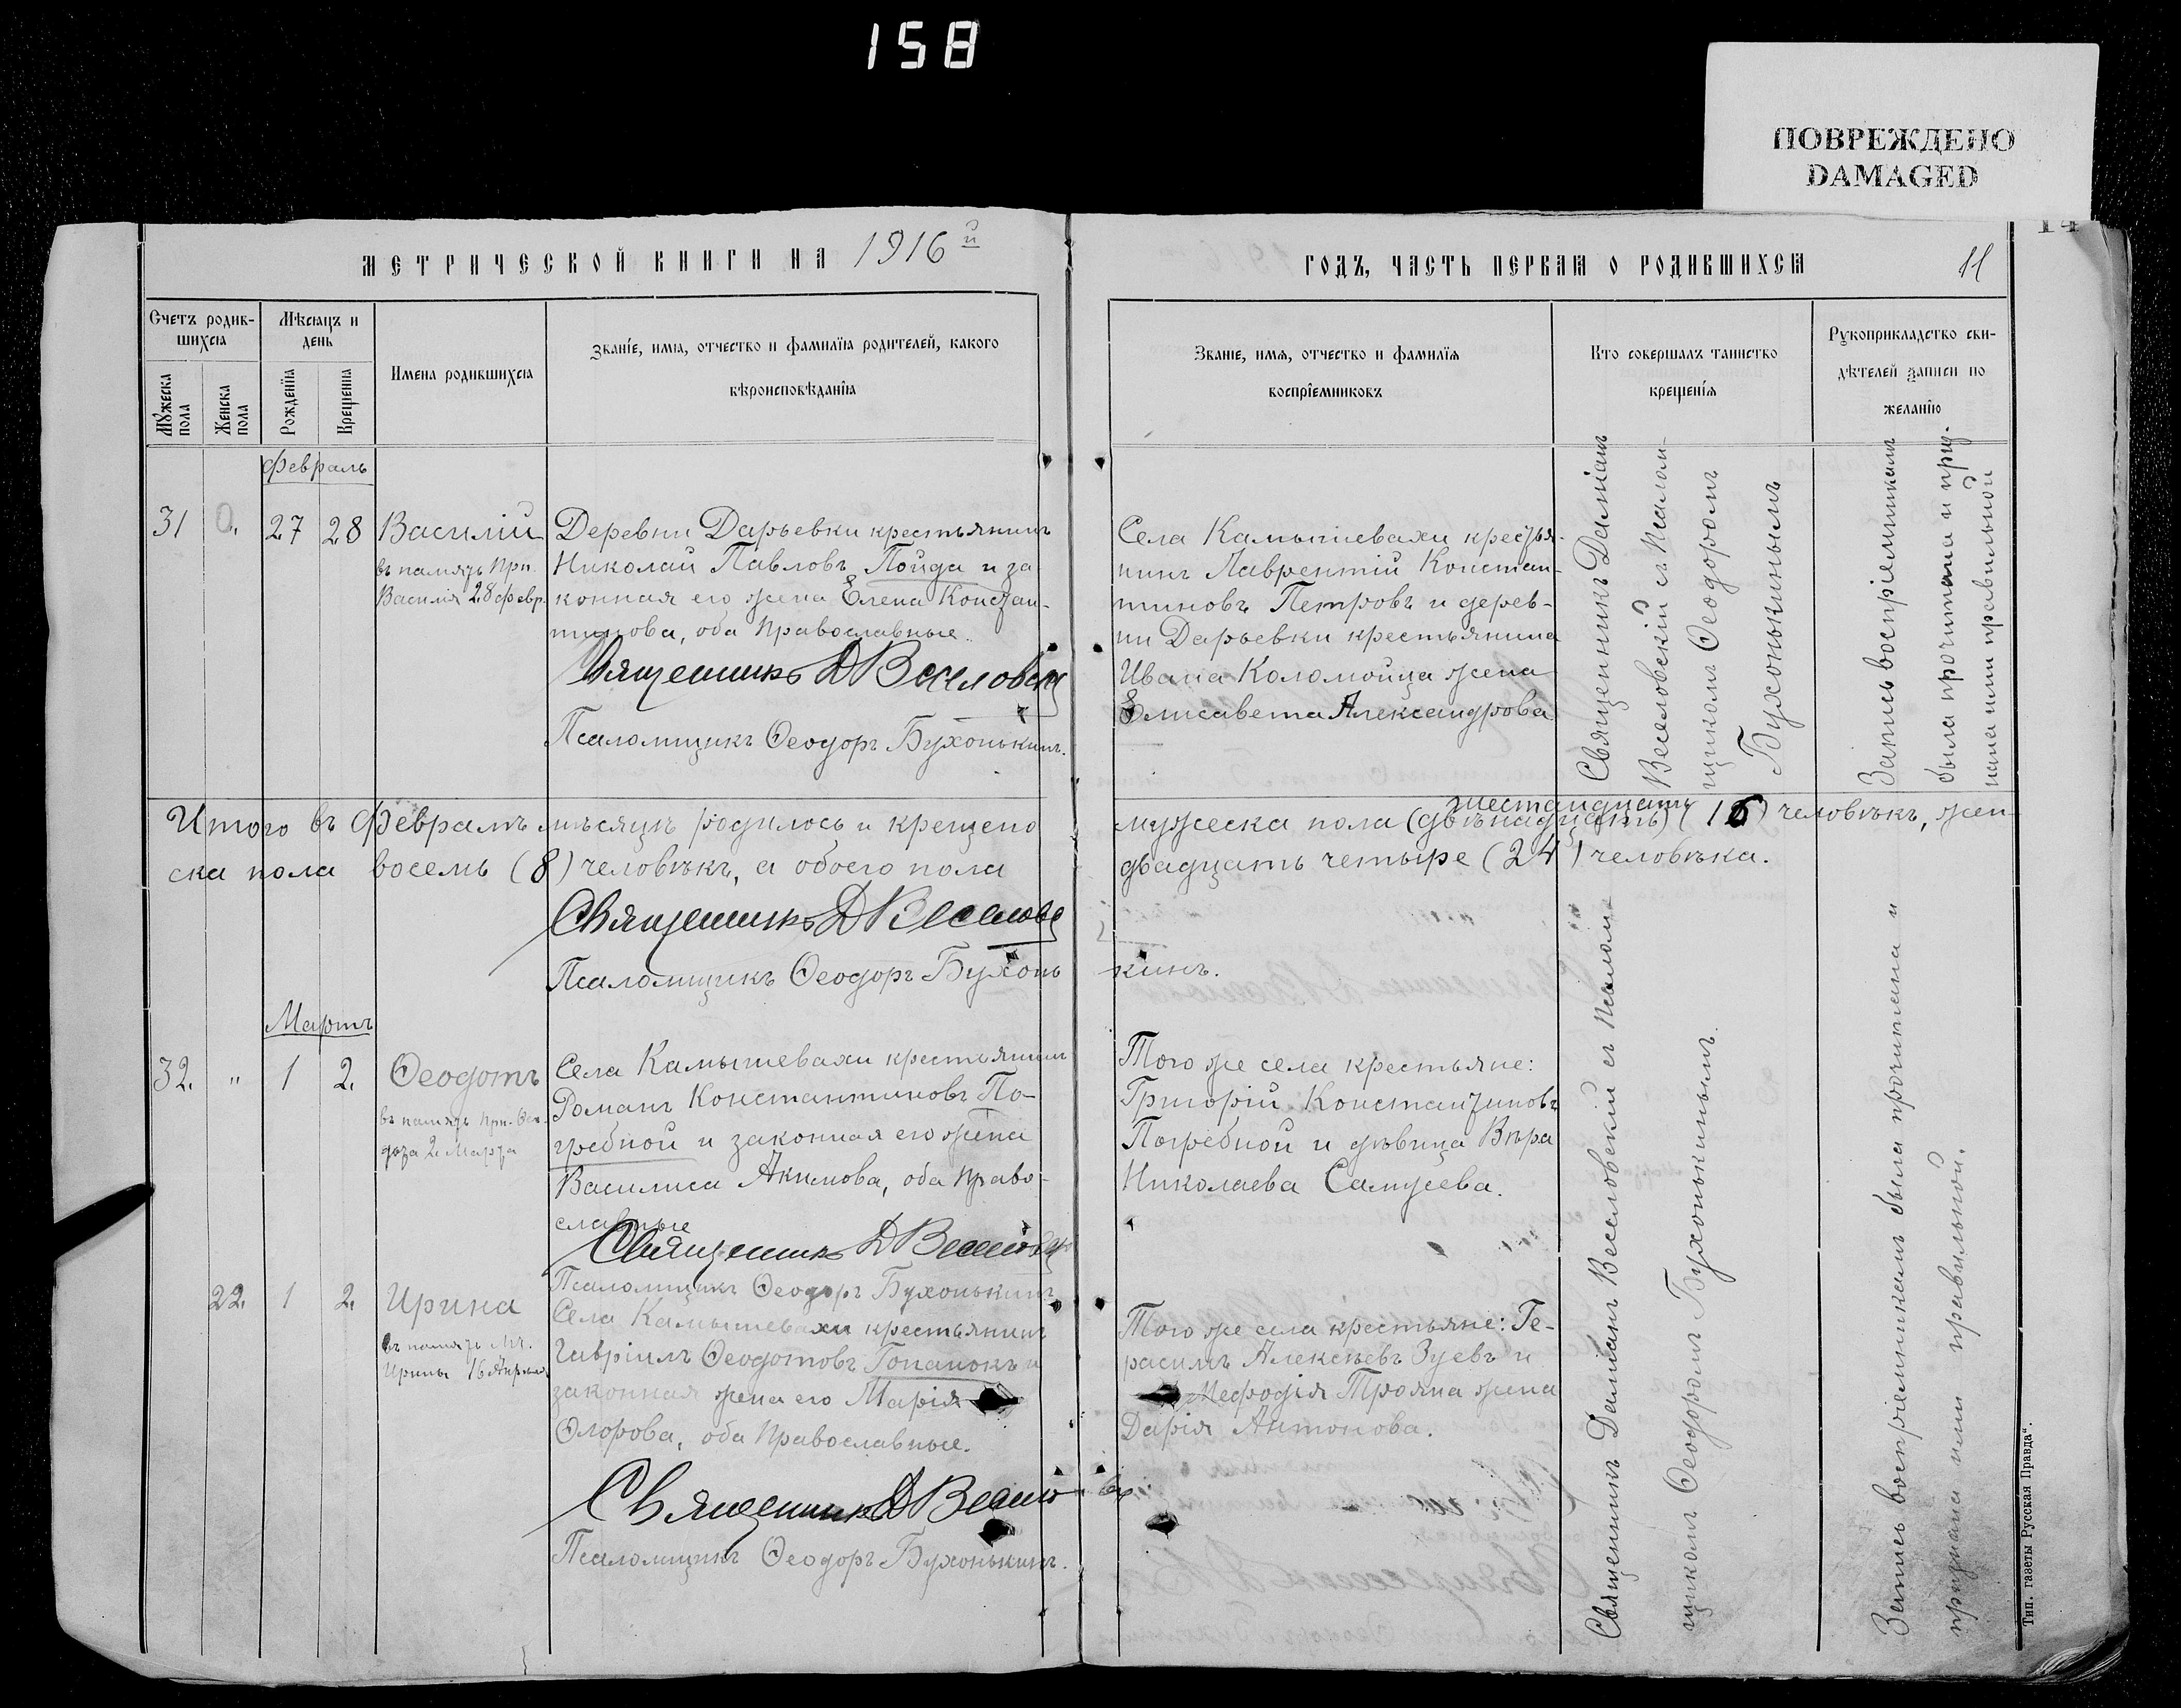 158
ПОВРЕЖДЕНО
DAMAGED
14
МЕТРИЧЕСКОЙ КНИГИ НА 1916й
ГОДЪ, ЧАСТЬ ПЕРВАЯ О РОДИВШИХСЯ
11
Счетъ родив-
шихся
Мѣсяцъ и
день
Мужеска
пола
Женска
пола
Рожденія
Крещенія
Имена родившихся
Званіе, имя, отчество и фамилія родителей, какого
вѣроисповѣданія
Званіе, имя, отчество и фамилія
воспріемниковъ
Кто совершалъ таинство
крещенія
Рукоприкладство сви-
дѣтелей записи по
желанію
Февраль
31 27 28
Василій
въ память Прп.
Василія 28 февр.
Деревни Дарьевки крестьянинъ
Николай Павловъ Пойда и за
конная его жена Елена Констан-
тинова, оба Православные.
Священникъ Д Веселовскій
Псаломщикъ Ѳеодоръ Бухонькинъ.
Села Камышевахи крестья-
нинъ Лаврентій Констан-
тиновъ Петровъ и дерев-
ни Дарьевки крестьянина
Ивана Коломойца жена
Елисавета Александрова
Священникъ Даміанъ
Веселовскій съ Псалом-
щикомъ Ѳеодоромъ
Бухонькинымъ
Запись воспріемникамъ
была прочитана и приз-
нана ими правильной
Итого въ Февралѣ мѣсяцѣ родилось и крещено мужеска пола (двѣнадцать) шестнадцать (16) человѣкъ, жен
ска пола восемь (8) человѣкъ, а обоего пола двадцать четыре (24) человѣка.
Священникъ Д Веселовскій
Псаломщикъ Ѳеодоръ Бухонькинъ.
Мартъ
32. " 1 2.
Ѳеодотъ
въ память Прп. Ѳео-
дота 2 Марта
Села Камышевахи крестьянинъ
Романъ Константиновъ По-
гребной и законная его жена
Василиса Акимова, оба Право-
славные
Священникъ Д Веселовскій
Псаломщикъ Ѳеодоръ Бухонькинъ
Того же села крестьяне:
Григорій Константиновъ
Погребной и дѣвица Вѣра
Николаева Самусева.
22. 1 2.
Ирина
въ память Мч.
Ирины 16 Апрѣля
Села Камышевахи крестьянинъ
Гавріилъ Ѳеодотовъ Гопанокъ и
законная жена его Марія
Флорова, оба Православные.
Священникъ Д Веселов
Псаломщикъ Ѳеодоръ Бухонькинъ.
Того же села крестьяне: Ге-
расимъ Алексѣевъ Зуевъ и
Меѳодія Трояна жена
Дарія Антонова.
Священникъ Даміанъ Веселовскій съ Псалом-
щикомъ Ѳеодоромъ Бухонькинымъ.
Запись воспріемникамъ была прочитана и
признана ими правильной.
Тип. газеты Русская Правда".